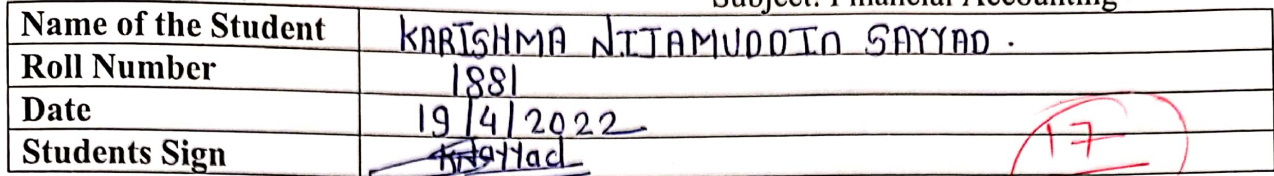 Subject: Financial Accounting
Name of the Student KARISHMA NIJAMUDDIN SAYYAD.
Roll Number 1881
Date 19/4/2022
Students Sign KNSayyad
17